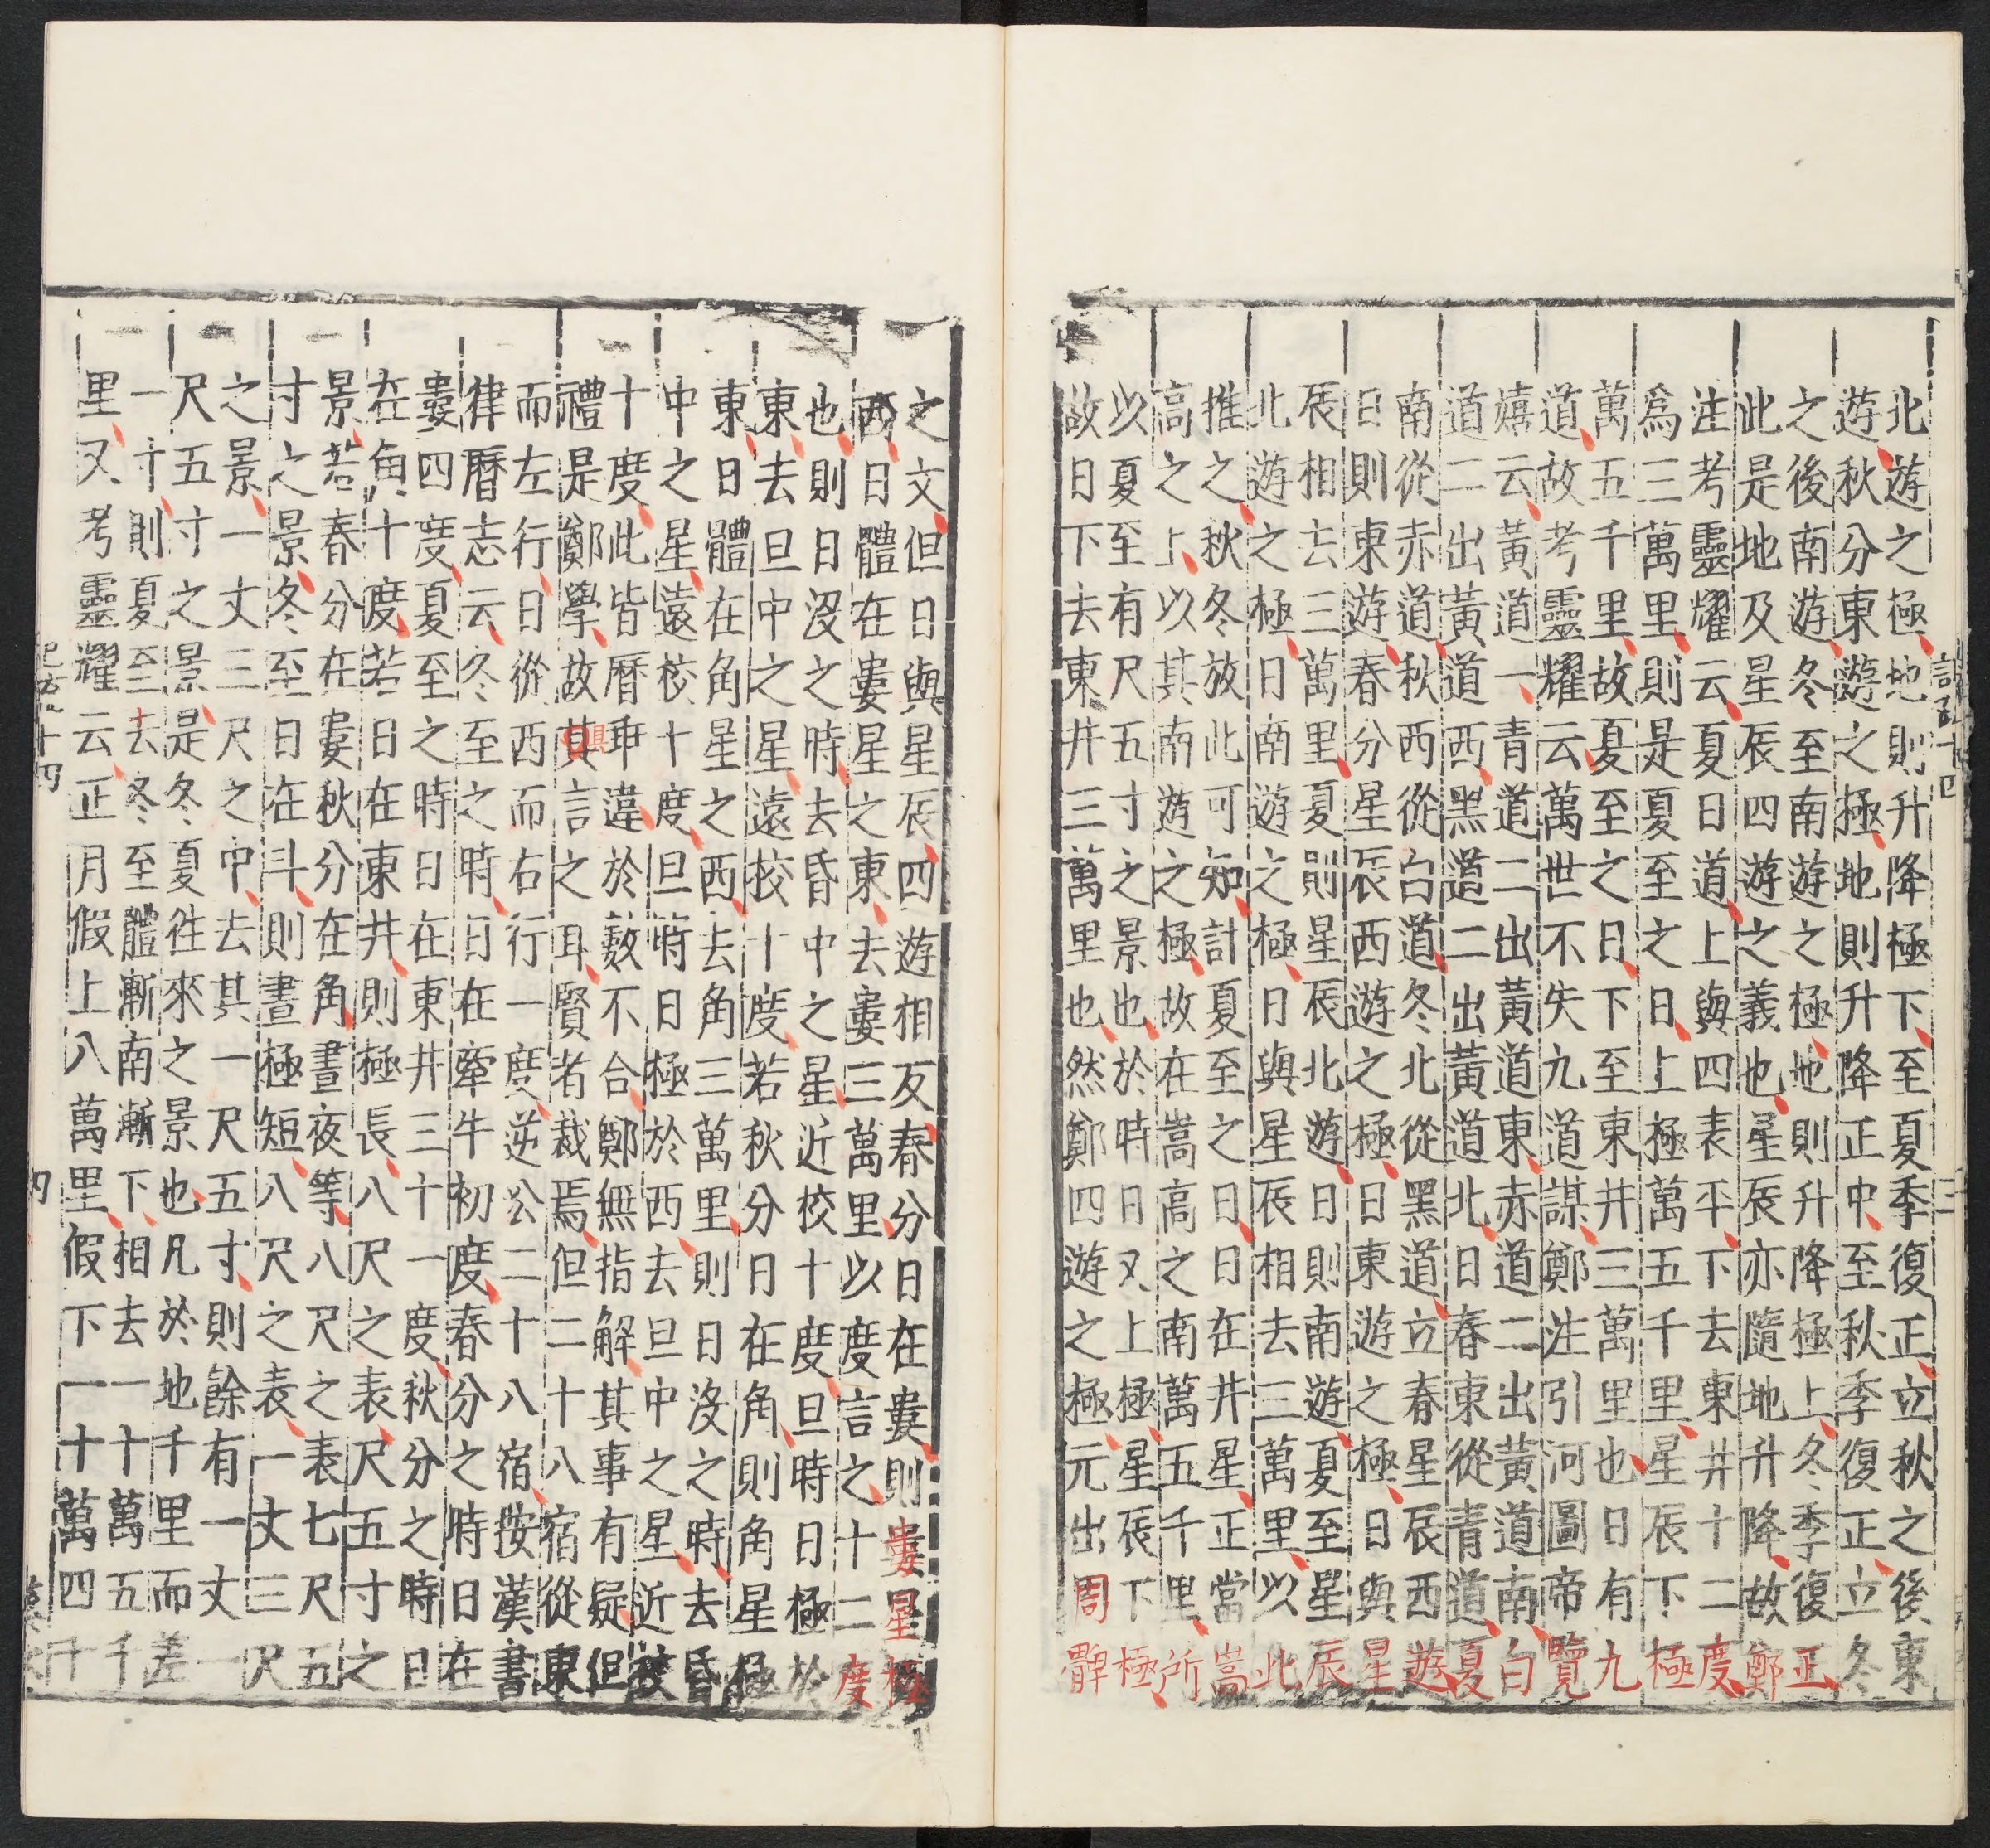 北遊之極地則升降極下至夏季復正立秋之後東
遊秋分東遊之極地則升降正中至秋季復正立冬
之後南遊冬至南遊之極地則升降極上冬季復正
此是地及星辰四遊之義也星辰亦隨地升降故鄭
注考靈耀云夏日道上與四表平下去東井十二度
爲三萬里則是夏至之日上極萬五千里星辰下極
萬五千里故夏至之日下至東井三萬里也日有九
道故考靈耀云萬世不失九道謀鄭注引河圖帝覽
嬉云黃道一青道二出黃道東赤道二出黃道南白
道二出黃道西黑道二出黃道北日春東從青道夏
南從赤道秋西從白道冬北從黑道立春星辰西遊
日則東遊春分星辰西遊之極日東遊之極日與星
辰相去三萬里夏則星辰北遊日則南遊夏至星辰
北遊之極日南遊之極日與星辰相去三萬里以此
推之秋冬放此可知計夏至之日日在井星正當嵩
高之上以其南遊之極故在嵩高之南萬五千里所
以夏至有尺五寸之景也於時日又上極星辰下極
故日下去東井三萬里也然鄭四遊之極元出周髀
之文但日與星辰四遊相反春分日在婁則婁星極
西日體在婁星之東去婁三萬里以度言之十二度
也則日沒之時去昏中之星近校十度旦時日極於
東去旦中之星遠校十度若秋分日在角則角星極
東日體在角星之西去角三萬里則日沒之時去昏
中之星遠校十度旦時日極於西去旦中之星近校
十度此皆曆乖違於數不合鄭無指解其事有疑但
禮是鄭學故其俱言之耳賢者裁焉但二十八宿從東
而左行日從西而右行一度逆公二十八宿按漢書
律曆志云冬至之時日在牽牛初度春分之時日在
婁四度夏至之時日在東井三十一度秋分之時日
在角十度若日在東井則極長八尺之表尺五寸之
景若春分在婁秋分在角晝夜等八尺之表七尺五
寸之景冬至日在斗則晝極短八尺之表一丈三尺
之景一丈三尺之中去其一尺五寸則餘有一丈一
尺五寸之景是冬夏往來之景也凡於地千里而差
一寸則夏至去冬至體漸南漸下相去一十萬五千
里又考靈耀云正月假上八萬里假下一十萬四千